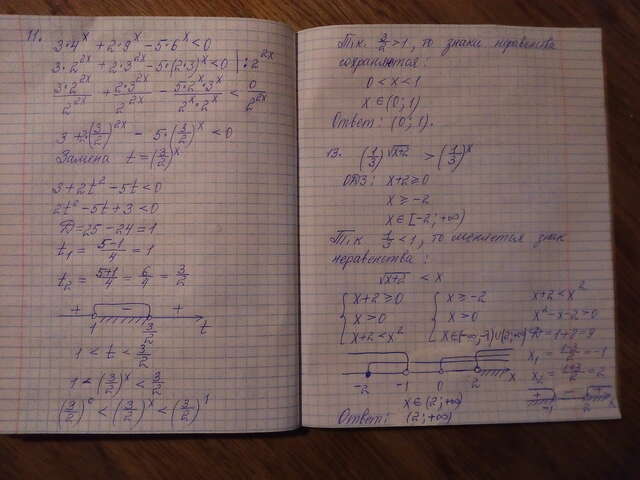 11. 3·4^x + 2·9^x − 5·6^x < 0
3·2^{2x} + 2·3^{2x} − 5·(2·3)^x < 0 | : 2^{2x}
\frac{3·2^{2x}}{2^{2x}} + \frac{2·3^{2x}}{2^{2x}} − \frac{5·2^x·3^x}{2^x·2^x} < \frac{0}{2^{2x}}
3 + 2(\frac{3}{2})^{2x} − 5·(\frac{3}{2})^x < 0
Замена t = (\frac{3}{2})^x
3 + 2t^2 − 5t < 0
2t^2 − 5t + 3 < 0
D = 25 − 24 = 1
t_1 = \frac{5−1}{4} = 1
t_2 = \frac{5+1}{4} = \frac{6}{4} = \frac{3}{2}
+ − +
1 \frac{3}{2} t
1 < t < \frac{3}{2}
1 < (\frac{3}{2})^x < \frac{3}{2}
(\frac{3}{2})^0 < (\frac{3}{2})^x < (\frac{3}{2})^1
Т.к. \frac{3}{2} > 1, то знаки неравенства
сохраняется:
0 < x < 1
x ∈ (0; 1)
Ответ: (0; 1).
13. (\frac{1}{3})^{\sqrt{x+2}} > (\frac{1}{3})^x
ОДЗ: x + 2 ≥ 0
x ≥ −2
x ∈ [−2; +∞)
Т.к \frac{1}{3} < 1, то меняется знак
неравенства:
\sqrt{x+2} < x
{ x + 2 ≥ 0 { x ≥ −2 x + 2 < x^2
x > 0 x > 0 x^2 − x − 2 > 0
x + 2 < x^2 x ∈ (−∞, −1) ∪ (2; +∞) D = 1 + 8 = 9
x_1 = \frac{1−3}{2} = −1
−2 −1 0 2 x x_2 = \frac{1+3}{2} = 2
x ∈ (2; +∞) + − +
Ответ: (2; +∞) −1 2 x